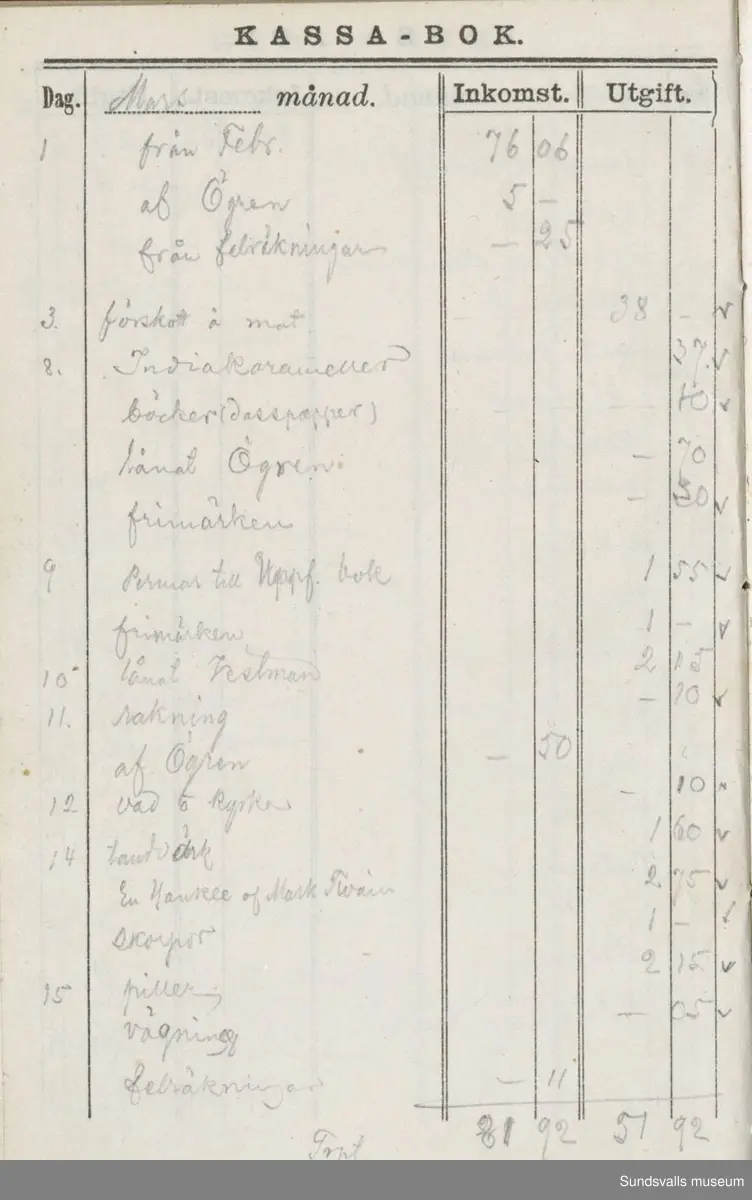 KASSA-BOK.
Dag. Mars månad. Inkomst. Utgift.
1 från Febr. 76 06
af Ögren 5 –
från felräkningar – 25
3. förskott å mat 38 – v
8. Indiakarameller 37 v
böcker (dasspapper) – 70 v
lånat Ögren – 70
frimärken – 50 v
9 Permar till Uppf. bok 1 55 v
frimärken 1 – v
10 lånat Vestman 2 15
11. rakning – 10 v
af Ögren – 50
12 vad o kyrka – 10 v
14 tandvärk 1 60 v
En Yankee af Mark Twain 2 75 v
skorpor 1 – v
15 piller 2 15 v
vägning – 05 v
felräkningar – 11
81 92 51 92
Trpt
Sundsvalls museum